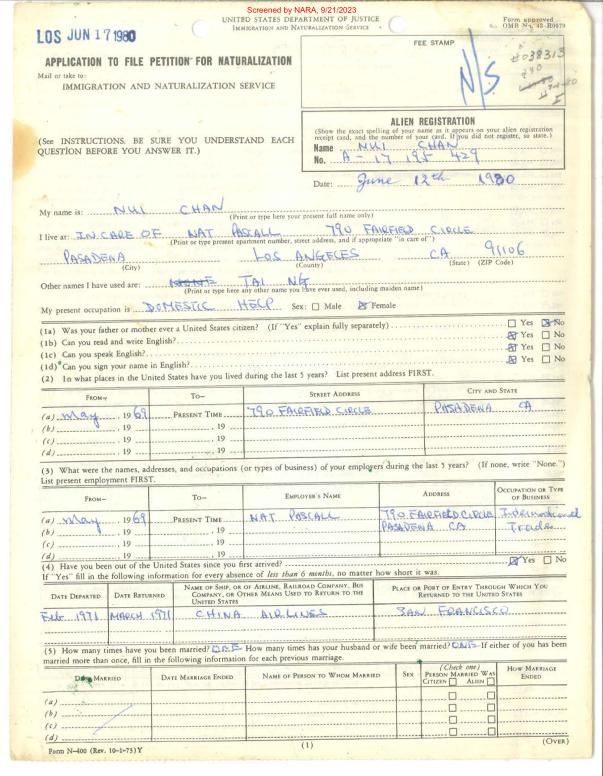 Screened by NARA, 9/21/2023
UNITED STATES DEPARTMENT OF JUSTICE
IMMIGRATION AND NATURALIZATION SERVICE
Form approved
OMB No. 43-R0079
LOS JUN 17 1980
FEE STAMP
N/S
APPLICATION TO FILE PETITION FOR NATURALIZATION
Mail or take to:
IMMIGRATION AND NATURALIZATION SERVICE
ALIEN REGISTRATION
(Show the exact spelling of your name as it appears on your alien registration
receipt card, and the number of your card. If you did not register, so state.)
Name NUI CHAN
No. A-17 195 429
(See INSTRUCTIONS. BE SURE YOU UNDERSTAND EACH
QUESTION BEFORE YOU ANSWER IT.)
Date: June 12th 1980
My name is: NUI CHAN
(Print or type here your present full name only)
I live at: IN CARE OF NAT PASCALL 790 FAIRFIELD CIRCLE
(Print or type present apartment number, street address, and if appropriate "in care of")
PASADENA LOS ANGELES CA 91106
(City) (County) (State) (ZIP Code)
Other names I have used are: TAI NG
(Print or type here any other name you have ever used, including maiden name)
My present occupation is DOMESTIC HELP Sex: Male Female
(1a) Was your father or mother ever a United States citizen? (If "Yes" explain fully separately) Yes No
(1b) Can you read and write English? Yes No
(1c) Can you speak English? Yes No
(1d) Can you sign your name in English? Yes No
(2) In what places in the United States have you lived during the last 5 years? List present address FIRST.
FROM— TO— STREET ADDRESS CITY AND STATE
(a) May, 1969 PRESENT TIME 790 FAIRFIELD CIRCLE PASADENA CA
(b) , 19 , 19
(c) , 19 , 19
(d) , 19 , 19
(3) What were the names, addresses, and occupations (or types of business) of your employers during the last 5 years? (If none, write "None.")
List present employment FIRST.
FROM— TO— EMPLOYER'S NAME ADDRESS OCCUPATION OR TYPE OF BUSINESS
(a) May, 1969 PRESENT TIME NAT PASCALL 790 FAIRFIELD CIRCLE International
(b) , 19 , 19 PASADENA CA Trade
(c) , 19 , 19
(d) , 19 , 19
(4) Have you been out of the United States since you first arrived? Yes No
If "Yes" fill in the following information for every absence of less than 6 months, no matter how short it was.
DATE DEPARTED DATE RETURNED NAME OF SHIP, OR OF AIRLINE, RAILROAD COMPANY, BUS COMPANY, OR OTHER MEANS USED TO RETURN TO THE UNITED STATES PLACE OR PORT OF ENTRY THROUGH WHICH YOU RETURNED TO THE UNITED STATES
Feb 1971 MARCH 1971 CHINA AIRLINES SAN FRANCISCO
(5) How many times have you been married? ONE How many times has your husband or wife been married? ONE If either of you has been
married more than once, fill in the following information for each previous marriage.
DATE MARRIED DATE MARRIAGE ENDED NAME OF PERSON TO WHOM MARRIED SEX (Check one) PERSON MARRIED WAS CITIZEN ALIEN HOW MARRIAGE ENDED
(a)
(b)
(c)
(d)
Form N-400 (Rev. 10-1-75)Y
(1)
(OVER)